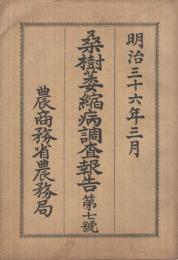 明治三十六年三月
桑樹萎縮病調査報告第七號
農商務省農務局